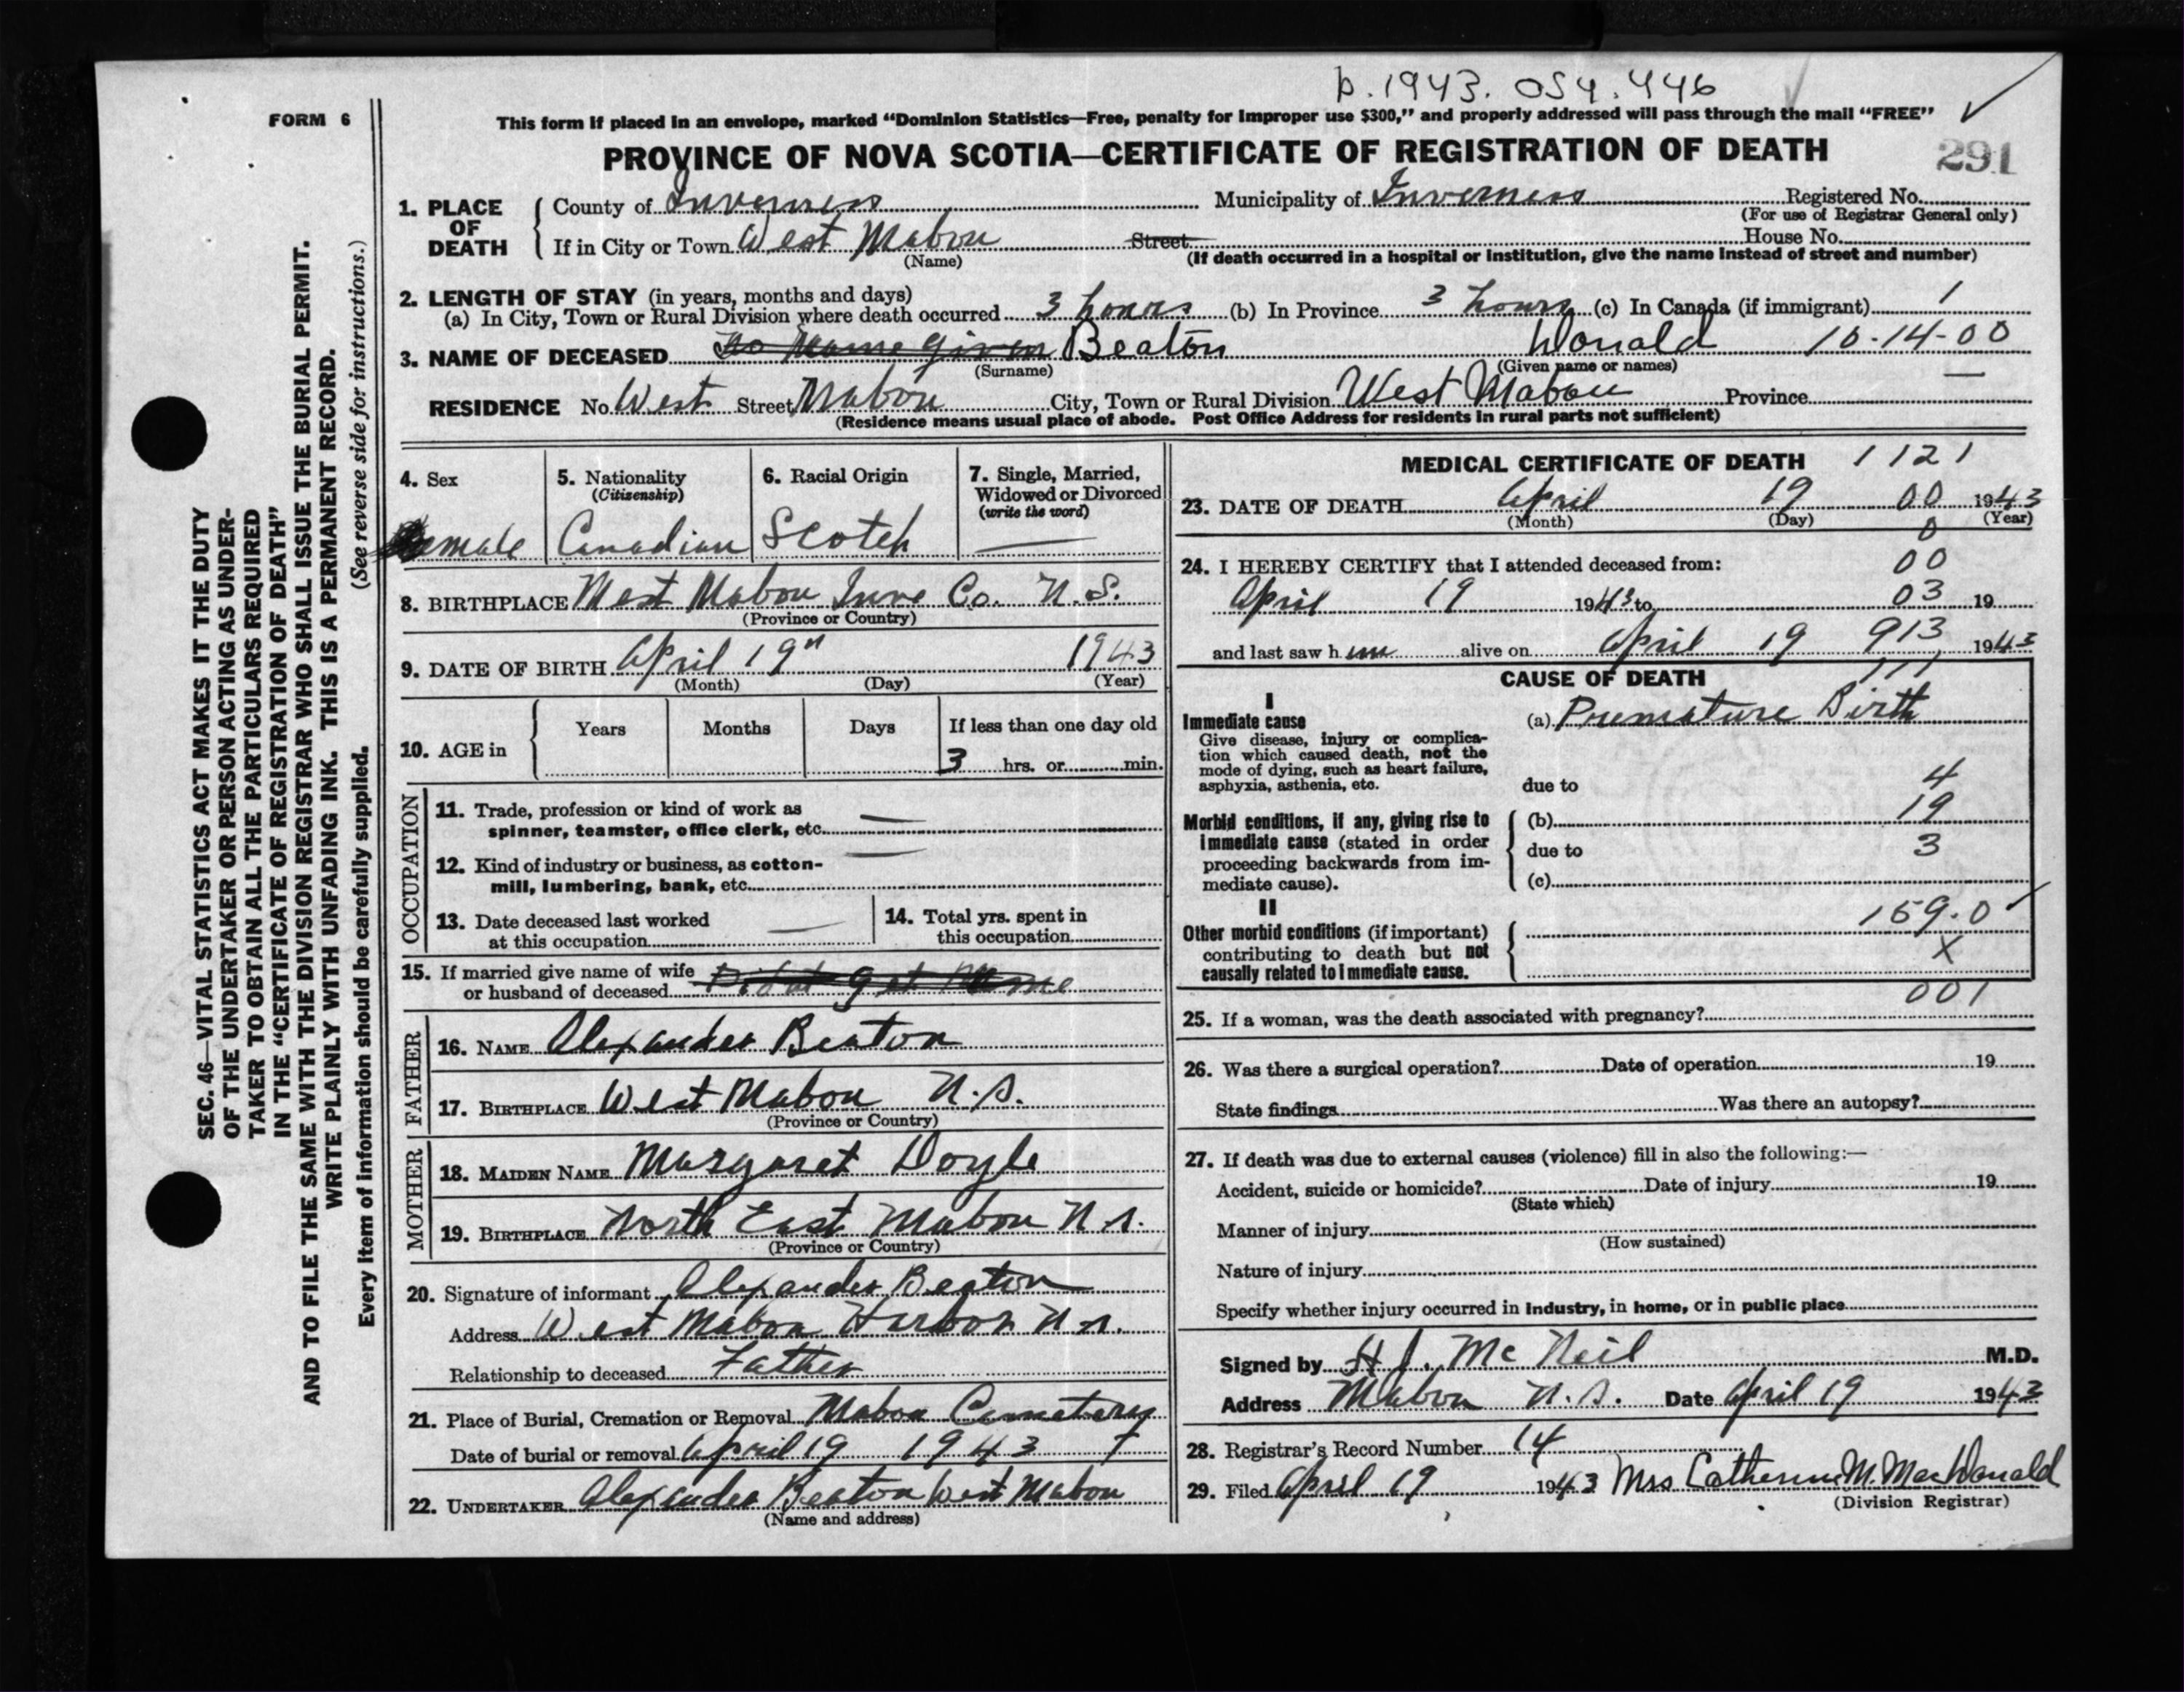 p.1943. 054.446
FORM 6
This form if placed in an envelope, marked “Dominion Statistics—Free, penalty for improper use $300,” and properly addressed will pass through the mail “FREE”
PROVINCE OF NOVA SCOTIA—CERTIFICATE OF REGISTRATION OF DEATH 291
1. PLACE OF DEATH
County of Inverness Municipality of Inverness Registered No.
(For use of Registrar General only)
If in City or Town West Mabou Street House No.
(Name) (If death occurred in a hospital or institution, give the name instead of street and number)
2. LENGTH OF STAY (in years, months and days)
(a) In City, Town or Rural Division where death occurred 3 hours (b) In Province 3 hours (c) In Canada (if immigrant) 1
3. NAME OF DECEASED No Name Given Beaton Donald 10-14-00
(Surname) (Given name or names)
RESIDENCE No. West Street Mabou City, Town or Rural Division West Mabou Province —
(Residence means usual place of abode. Post Office Address for residents in rural parts not sufficient)
SEC. 46—VITAL STATISTICS ACT MAKES IT THE DUTY
OF THE UNDERTAKER OR PERSON ACTING AS UNDER-
TAKER TO OBTAIN ALL THE PARTICULARS REQUIRED
IN THE “CERTIFICATE OF REGISTRATION OF DEATH”
AND TO FILE THE SAME WITH THE DIVISION REGISTRAR WHO SHALL ISSUE THE BURIAL PERMIT.
WRITE PLAINLY WITH UNFADING INK. THIS IS A PERMANENT RECORD.
Every item of information should be carefully supplied. (See reverse side for instructions.)
4. Sex
male
5. Nationality
(Citizenship)
Canadian
6. Racial Origin
Scotch
7. Single, Married,
Widowed or Divorced
(write the word)
—
8. BIRTHPLACE West Mabou Inve Co. N.S.
(Province or Country)
9. DATE OF BIRTH April 19th 1943
(Month) (Day) (Year)
10. AGE in Years Months Days If less than one day old
3 hrs. or min.
OCCUPATION
11. Trade, profession or kind of work as
spinner, teamster, office clerk, etc. —
12. Kind of industry or business, as cotton-
mill, lumbering, bank, etc. —
13. Date deceased last worked
at this occupation —
14. Total yrs. spent in
this occupation
15. If married give name of wife
or husband of deceased
FATHER
16. NAME Alexander Beaton
17. BIRTHPLACE West Mabou N.S.
(Province or Country)
MOTHER
18. MAIDEN NAME Margaret Doyle
19. BIRTHPLACE North East Mabou N.S.
(Province or Country)
20. Signature of informant Alexander Beaton
Address West Mabou Harbor N.S.
Relationship to deceased Father
21. Place of Burial, Cremation or Removal Mabou Cemetery
Date of burial or removal April 19 1943
22. UNDERTAKER Alexander Beaton West Mabou
(Name and address)
MEDICAL CERTIFICATE OF DEATH 1121
23. DATE OF DEATH April 19 00 1943
(Month) (Day) (Year)
0
24. I HEREBY CERTIFY that I attended deceased from: 00
April 19 1943 to 03 19
and last saw h im alive on April 19 913, 1943
CAUSE OF DEATH 111
I
Immediate cause
Give disease, injury or complica-
tion which caused death, not the
mode of dying, such as heart failure,
asphyxia, asthenia, etc.
(a) Premature Birth
due to 4
Morbid conditions, if any, giving rise to
immediate cause (stated in order
proceeding backwards from im-
mediate cause).
(b) 19
due to 3
(c)
II
Other morbid conditions (if important)
contributing to death but not
causally related to immediate cause.
159.0 ✓
X
001
25. If a woman, was the death associated with pregnancy?
26. Was there a surgical operation? Date of operation 19
State findings Was there an autopsy?
27. If death was due to external causes (violence) fill in also the following:—
Accident, suicide or homicide? Date of injury 19
(State which)
Manner of injury
(How sustained)
Nature of injury
Specify whether injury occurred in industry, in home, or in public place
Signed by H J. McNeil M.D.
Address Mabou N.S. Date April 19 1943
28. Registrar's Record Number 14
29. Filed April 19 1943 Mrs Catherine M. MacDonald
(Division Registrar)